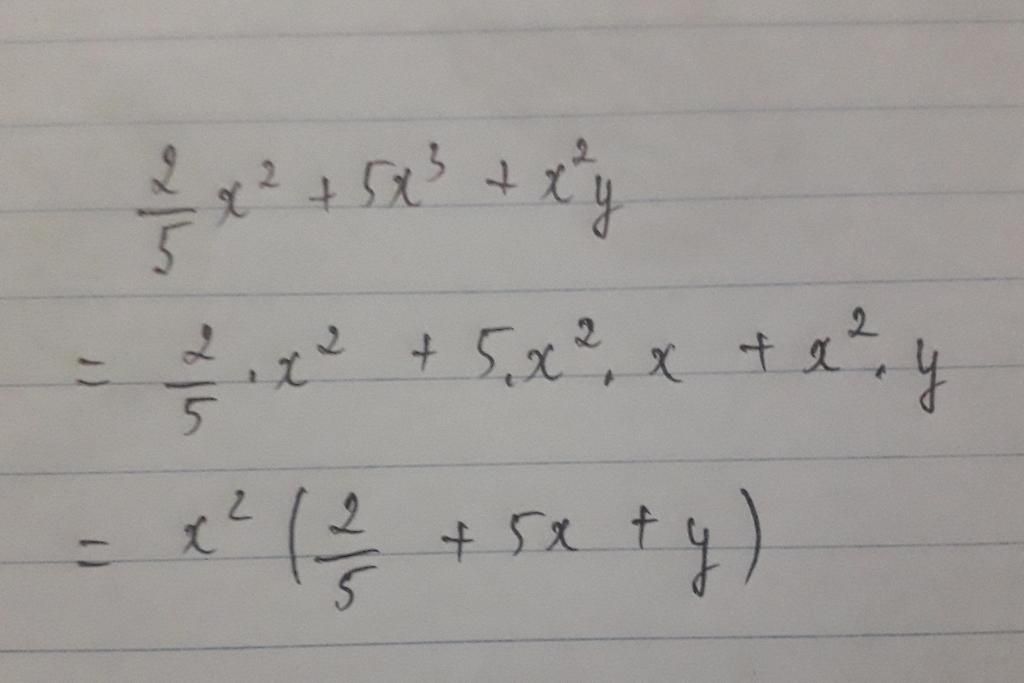 2/5 x² + 5x³ + x²y
= 2/5 . x² + 5.x². x + x². y
= x² (2/5 + 5x + y)